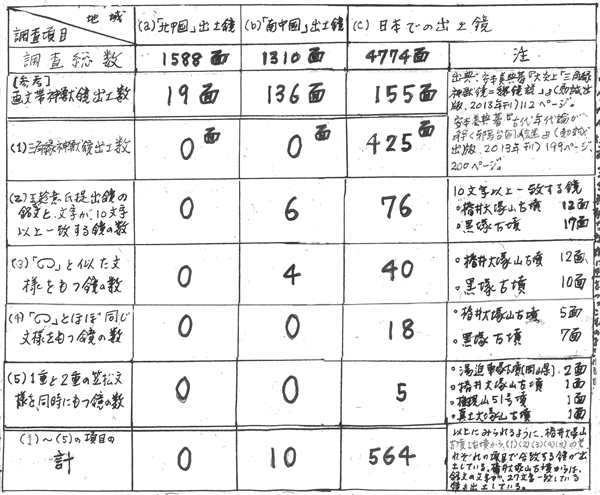 地域
調査項目
(a)「北中国」出土鏡
(b)「南中国」出土鏡
(c) 日本での出土鏡
調査総数
1588面
1310面
4774面
注
[参考]
画文帯神獣鏡出土数
19面
136面
155面
出典、安本美典著『大炎上「三角縁
神獣鏡=魏鏡説」』(勉誠出
版、2013年刊)112ページ。
安本美典著『古代年代論が
解く邪馬台国の謎』(勉誠
出版、2013年刊)199ページ、
200ページ。
(1)三角縁神獣鏡出土数
0面
0面
425面
(2)王趁意氏提出鏡の
銘文と、文字が、10文字
以上一致する鏡の数
0
6
76
10文字以上一致する鏡
・椿井大塚山古墳 12面
・黒塚古墳 17面
(3)「の」と似た文
様をもつ鏡の数
0
4
40
・椿井大塚山古墳 12面
・黒塚古墳 10面
(4)「の」とほぼ同じ
文様をもつ鏡の数
0
0
18
・椿井大塚山古墳 5面
・黒塚古墳 7面
(5)1重と2重の笠松文
様を同時にもつ鏡の数
0
0
5
・湯迫車塚古墳(岡山県) 2面
・椿井大塚山古墳 1面
・権現山51号墳 1面
・真土大塚山古墳 1面
(1)~(5)の項目の
計
0
10
564
以上にみられるように、椿井大塚山
古墳からは、(1)(2)(3)(4)(5)の
それぞれの項目で合致する鏡が出
土している。椿井大塚山古墳からは、
銘文の文字が、27文字一致している
鏡も出土している。